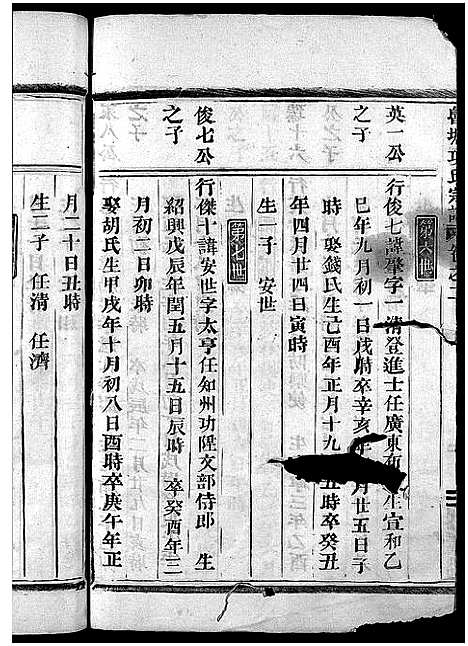 氏宗譜
第六世
英一公
之子
行俊七諱肇字一清登進士任廣東布 生宣和乙
巳年九月初一日戌時卒辛亥年 月廿五日子
時 娶錢氏生己酉年正月十九 丑時卒癸丑
年四月廿四日寅時
生一子 安世
第七世
俊七公
之子
行傑十諱安世字太亨任知州功陞文部侍郎 生
紹興戊辰年閏五月十五日辰時 卒癸酉年三
月初二日卯時
娶胡氏生甲戌年十月初八日酉時卒庚午年正
月二十日丑時
生二子 任清 任濟